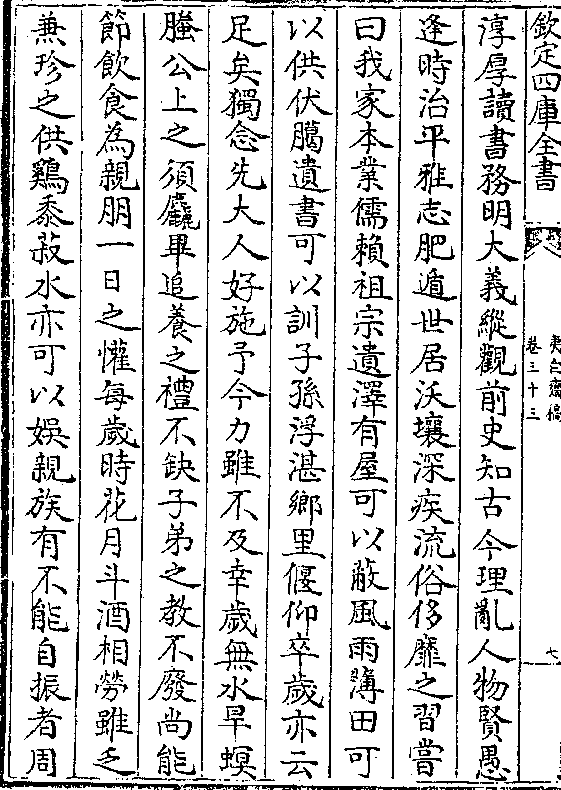 欽定四庫全書
夷白齋稿
卷三十三
七
淳厚讀書務明大義縱觀前史知古今理亂人物賢愚
逢時治平雅志肥遁世居沃壤深疾流俗侈靡之習嘗
曰我家本業儒賴祖宗遺澤有屋可以蔽風雨薄田可
以供伏臈遺書可以訓子孫浮湛鄉里偃仰卒歲亦云
足矣獨念先大人好施予今力雖不及幸歲無水旱螟
螣公上之須麤畢追養之禮不缺子弟之教不廢尚能
節飲食為親朋一日之懽每歲時花月斗酒相勞雖乏
兼珍之供鷄黍菽水亦可以娛親族有不能自振者周